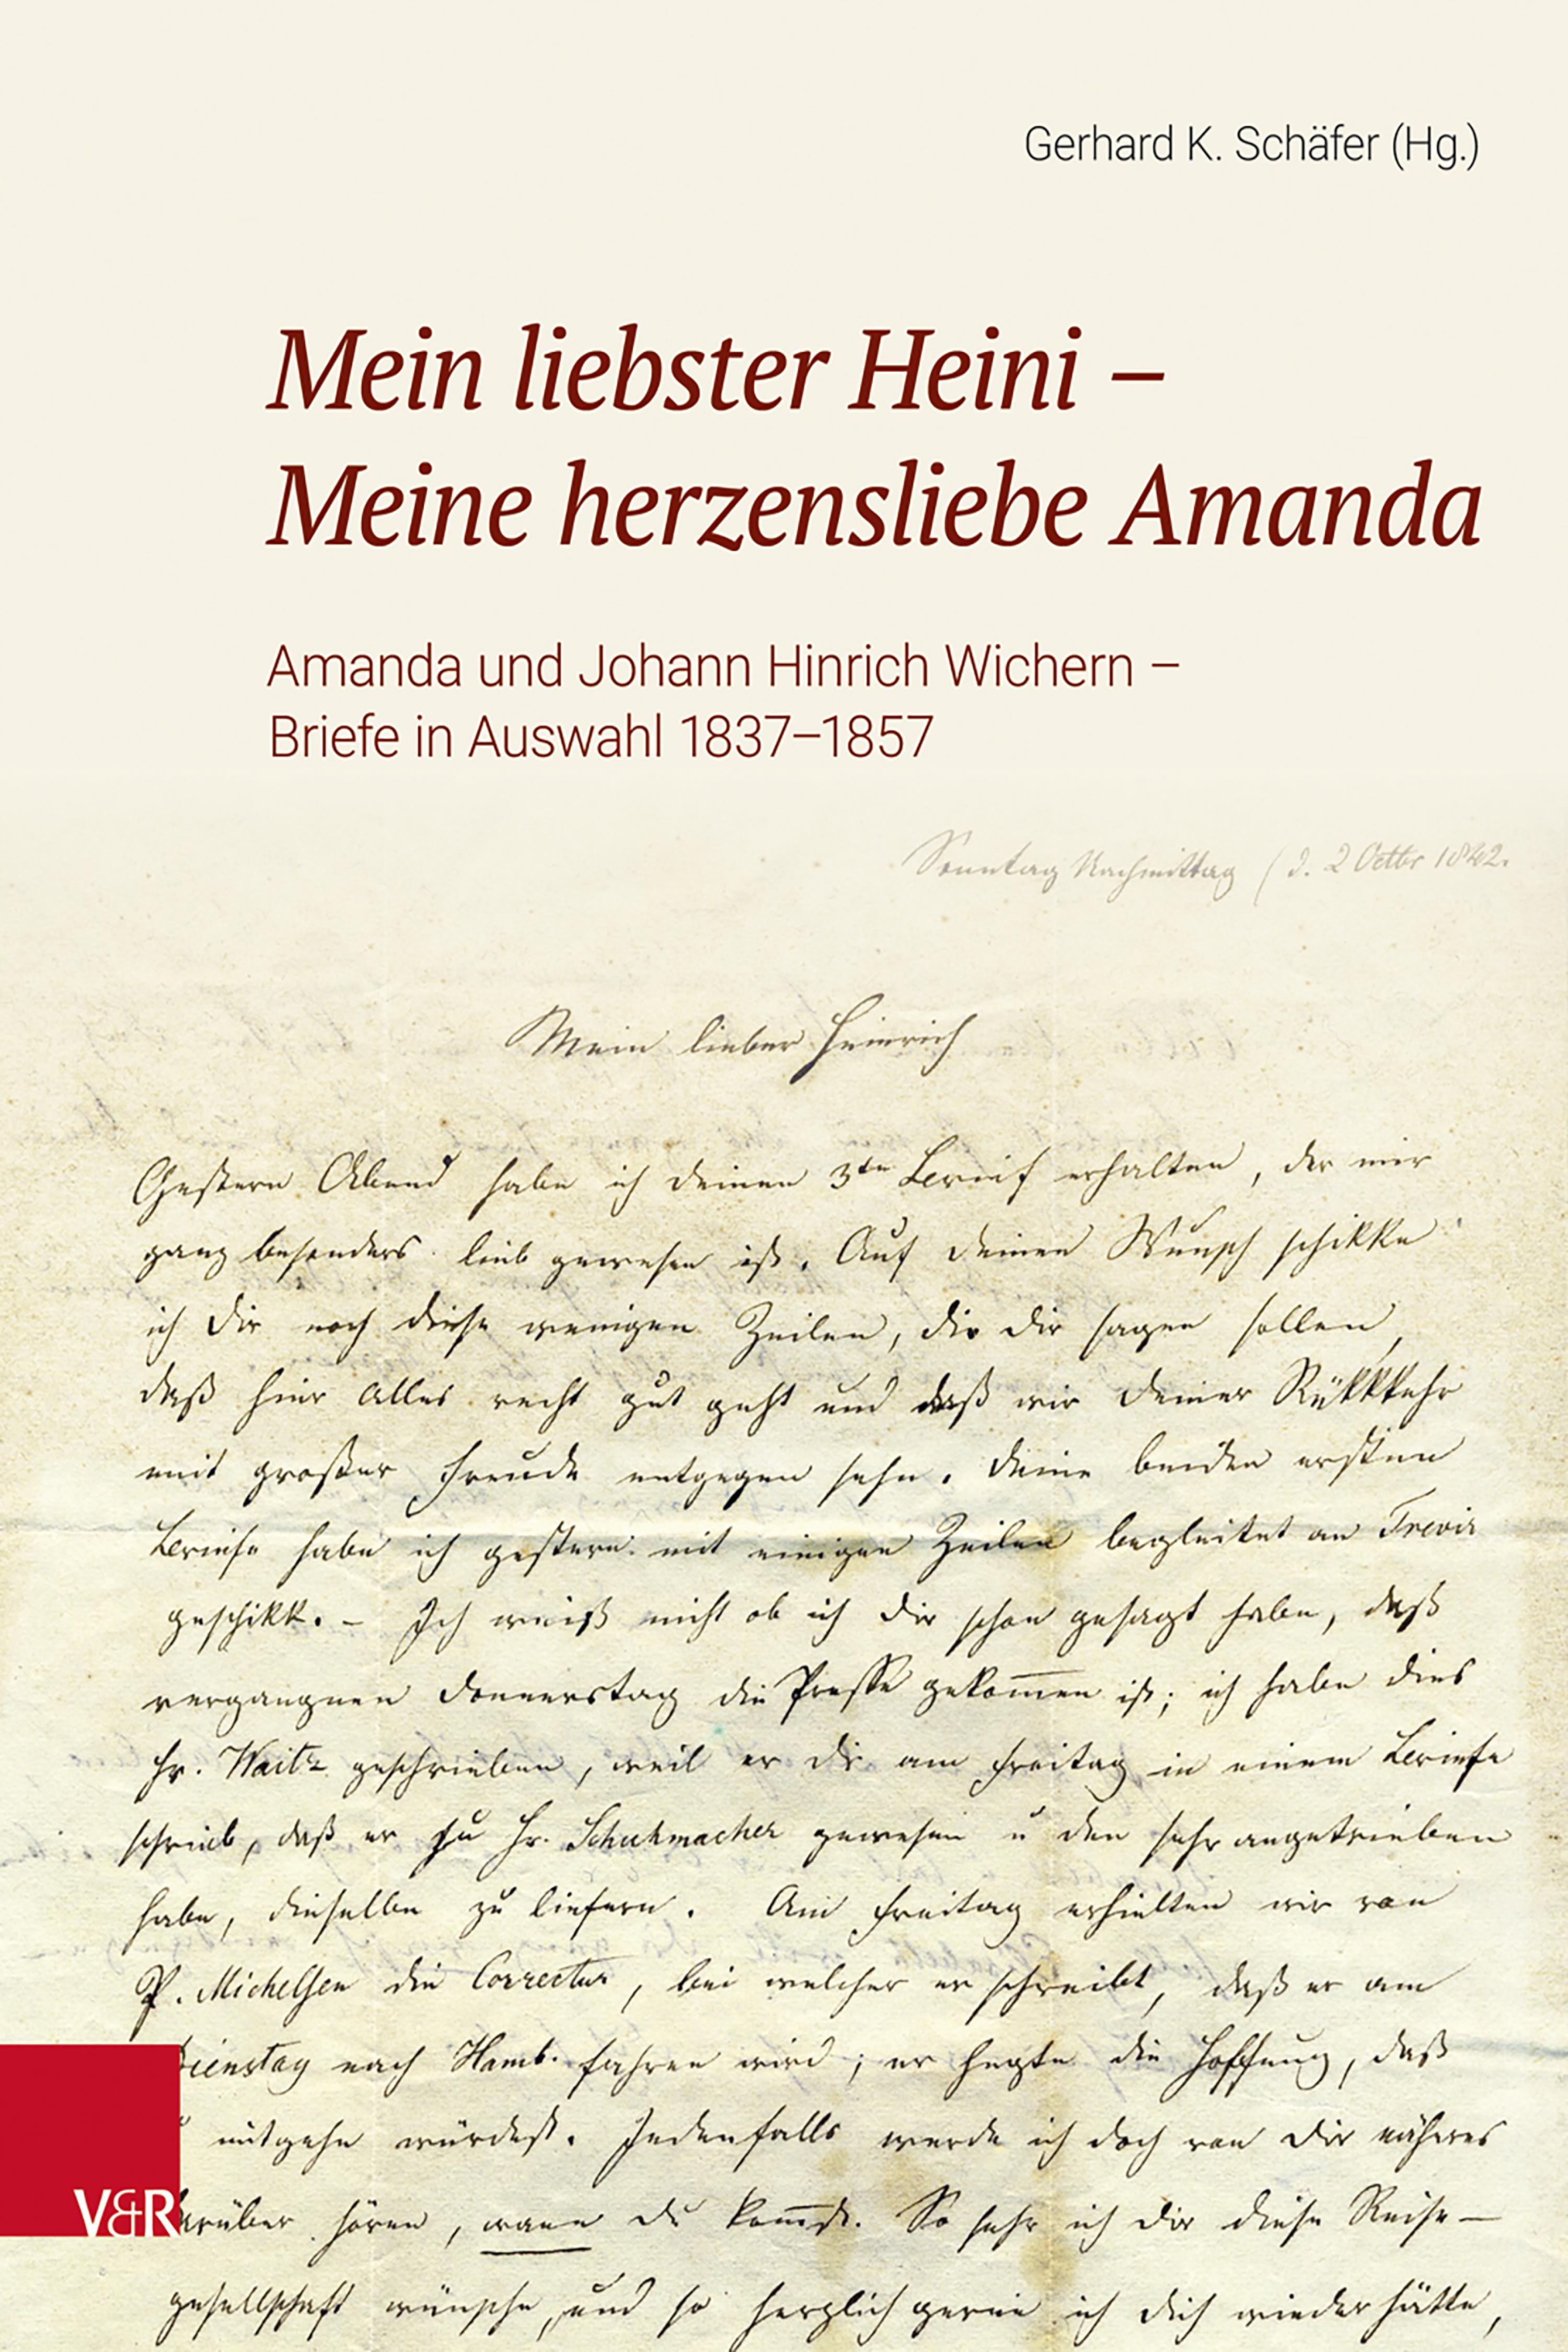 Gerhard K. Schäfer (Hg.)
Mein liebster Heini –
Meine herzensliebe Amanda
Amanda und Johann Hinrich Wichern –
Briefe in Auswahl 1837–1857
Sonntag Nachmittag (d. 2 Octbr 1842.
Mein lieber Heinrich
Gestern Abend habe ich deinen 3ten Brief erhalten, der mir
ganz besonders lieb gewesen ist. Auf deinen Wunsch schikke
ich dir noch diese wenigen Zeilen, die dir sagen sollen,
daß hier alles recht gut geht und daß wir deiner Rükkkehr
mit großer Freude entgegen sehn. Deine beiden ersten
Briefe habe ich gestern mit einigen Zeilen begleitet an
geschikk. – Ich weiß nicht ob ich dir schon gesagt habe, daß
vergangnen Donnerstag die Presse gekom̅en ist; ich habe dies
Hr. Waitz geschrieben, weil er dir am Freitag in einem Briefe
schrieb, daß er zu Hr. Schuhmacher gewesen u den sehr angetrieben
habe, dieselbe zu liefern. Am Freitag erhielten wir von
P. Michelsen die Correctur, bei welcher er schreibt, daß er am
Dienstag nach Hamb. fahren wird; er hegte die Hoffnung, daß
mitgehn würdest. Jedenfalls werde ich doch von dir näheres
darüber hören, wann du kom̅st. So sehr ich dir diese Reise–
gesellschaft wünsche, und so herzlich gerne ich dich wieder hätte,
V&R